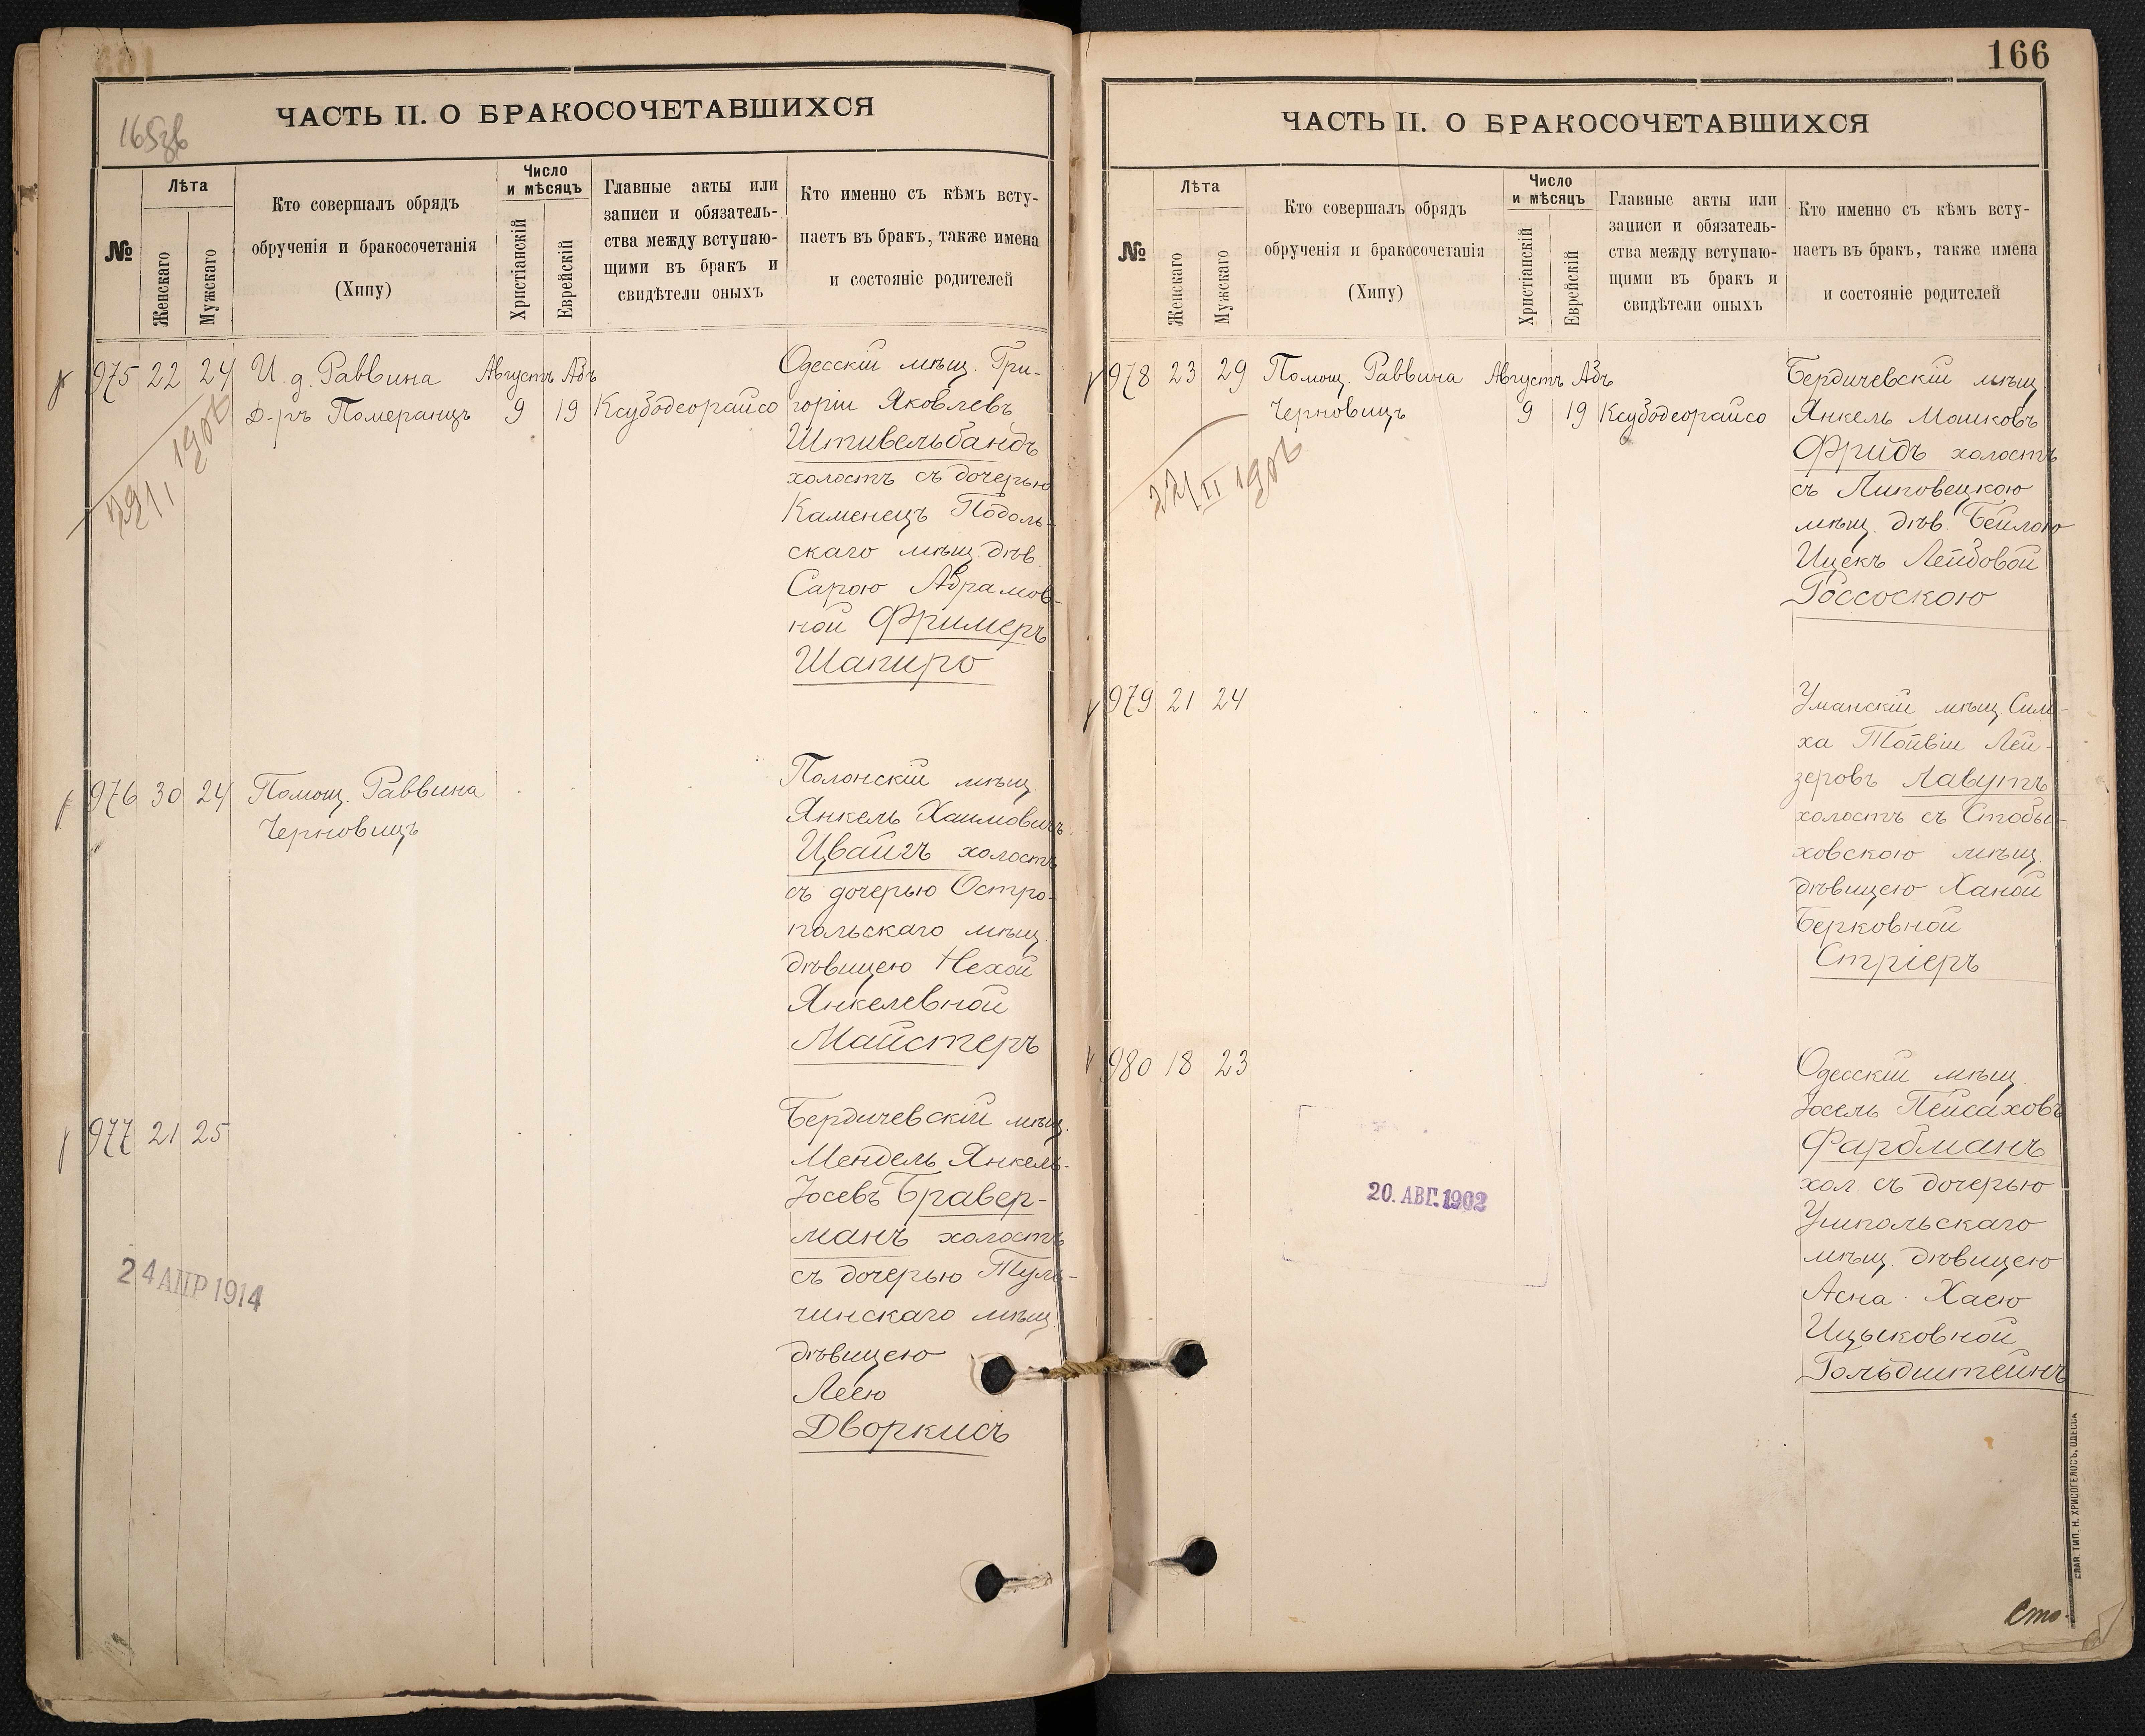 165зв
ЧАСТЬ II. О БРАКОСОЧЕТАВШИХСЯ
№
Лѣта
Женскаго
Мужскаго
Кто совершалъ обрядъ
обрученія и бракосочетанія
(Хипу)
Число
и мѣсяцъ
Христіанскій
Еврейскій
Главные акты или
записи и обязатель-
ства между вступаю-
щими въ бракъ и
свидѣтели оныхъ
Кто именно съ кѣмъ всту-
паетъ въ бракъ, также имена
и состояніе родителей
975 22 24 И. д. Раввина Августъ Абъ
Д-ръ Померанцъ 9 19 Ксубодеорайсо
Одесскій мѣщ. Гри-
горій Яковлевъ
Штивельбандъ
холостъ съ дочерью
Каменецъ Подоль-
скаго мѣщ. дѣв.
Сарою Абрамов-
ной Фримеръ
Шапиро
976 30 24 Помощ. Раввина
Черновицъ
Полонскій мѣщ.
Янкель Хаимовичъ
Цвайгъ холостъ
съ дочерью Остро-
польскаго мѣщ.
дѣвицею Нехой
Янкелевной
Майстеръ
977 21 25
Бердичевскій мѣщ.
Мендель Янкель-
Іосевъ Бравер-
манъ холостъ
съ дочерью Туль-
чинскаго мѣщ.
дѣвицею
Леею
Дворкисъ
24 АПР 1914
166
ЧАСТЬ II. О БРАКОСОЧЕТАВШИХСЯ
№
Лѣта
Женскаго
Мужскаго
Кто совершалъ обрядъ
обрученія и бракосочетанія
(Хипу)
Число
и мѣсяцъ
Христіанскій
Еврейскій
Главные акты или
записи и обязатель-
ства между вступаю-
щими въ бракъ и
свидѣтели оныхъ
Кто именно съ кѣмъ всту-
паетъ въ бракъ, также имена
и состояніе родителей
978 23 29 Помощ. Раввина Августъ Абъ
Черновицъ 9 19 Ксубодеорайсо
Бердичевскій мѣщ.
Янкель Мошковъ
Фридъ холостъ
съ Липовецкою
мѣщ. дѣв. Бейлою
Ицекъ Лейбовой
Россоскою
979 21 24
Уманскій мѣщ. Сим-
ха Тойвій Лей-
зеровъ Лавутъ
холостъ съ Стобы-
ховскою мѣщ.
дѣвицею Ханой
Берковной
Стріеръ
980 18 23
Одесскій мѣщ.
Іосель Пейсаховъ
Фарбманъ
хол. съ дочерью
Умпольскаго
мѣщ. дѣвицею
Асна-Хаею
Ицьковной
Гольдштейнъ
20. АВГ. 1902
СЛАВ. ТИП. Н. ХРИСОГЕЛОСЪ, ОДЕССА
Сто-